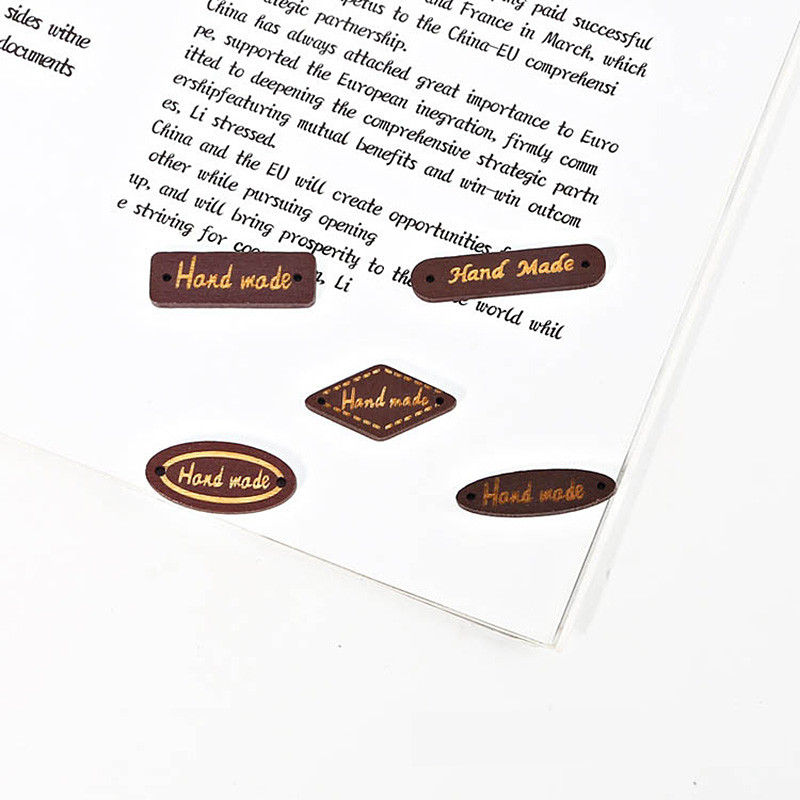 sides witne
documents
ing paid successful
and France in March, which
petus to the China-EU comprehensi
ategic partnership.
China has always attached great importance to Euro
pe, supported the European inegration, firmly comm
itted to deepening the comprehensive strategic partn
ershipfeaturing mutual benefits and win-win outcom
es, Li stressed.
China and the EU will create opportunities f
other while pursuing opening
up, and will bring prosperity to the world whil
e striving for coo n, Li
Hand made
Hand Made
Hand made
Hand made
Hand made